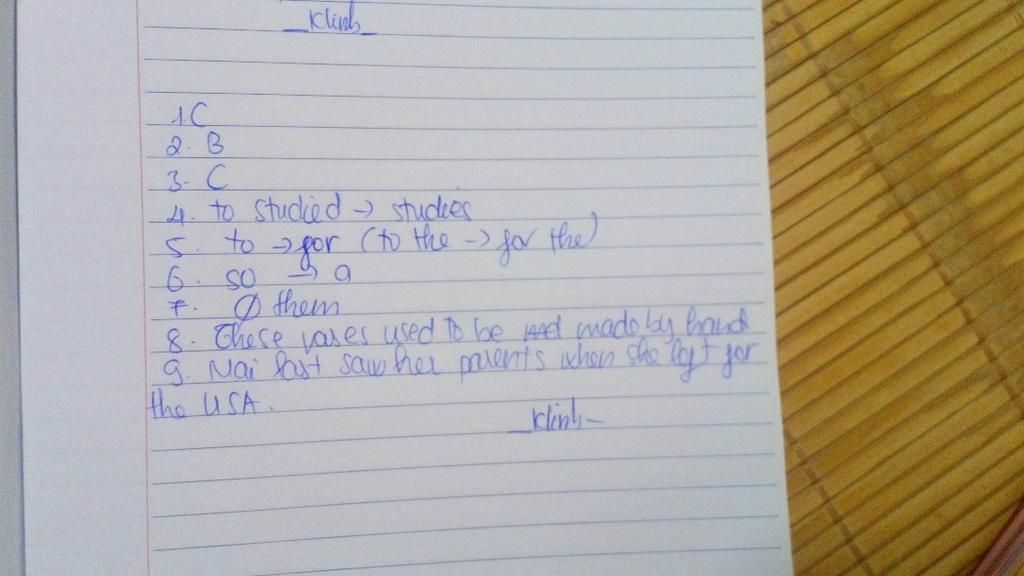 _Klinh_
1. C
2. B
3. C
4. to studied → studies
5. to → for (to the → for the)
6. so → a
7. Ø them
8. These vases used to be made by hand
9. Mai last saw her parents when she left for
the USA.
_Klinh_